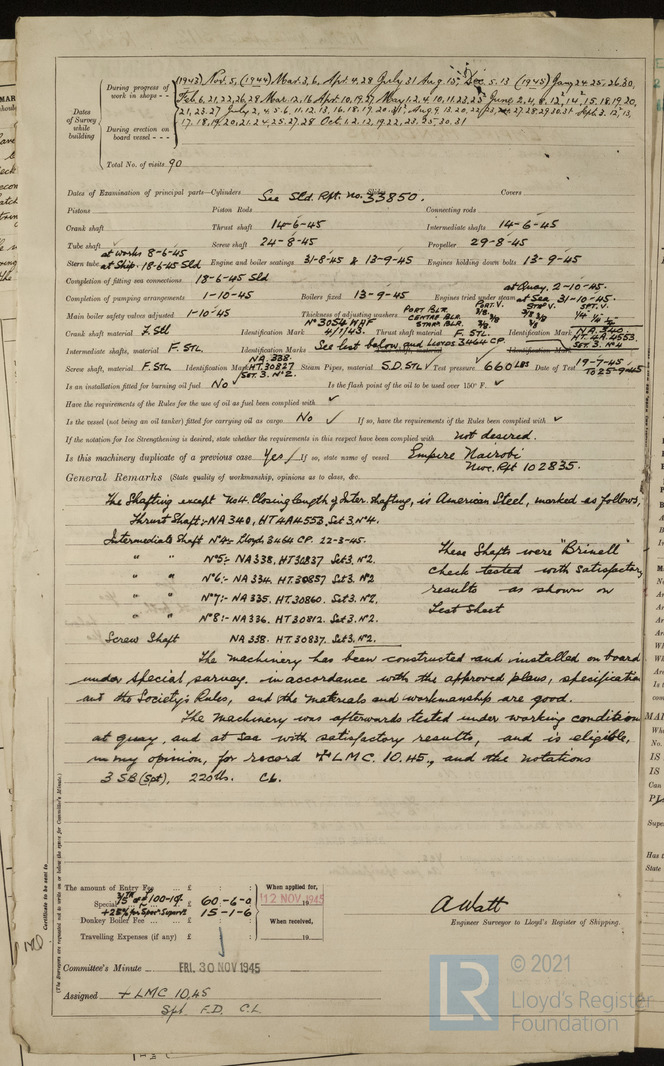 (1943) Nov. 5, (1944) Mar. 3, 6, Apr. 4, 28 July 31 Aug. 15, Dec. 5. 13 (1945) Jan. 24. 25. 26. 30.
During progress of work in shops - -
Feb. 6. 21. 22. 26. 28 Mar. 12. 16 Apr. 10. 19. 27 May 1. 2. 4. 10. 11. 23. 25 June 2. 4. 8. 12. 14. 15. 18. 19. 20.
Dates of Survey while building
During erection on board vessel - - -
Total No. of visits 90
Dates of Examination of principal parts—Cylinders See Sld. Rpt. No. 33850. Slides Covers
Pistons Piston Rods Connecting rods
Crank shaft Thrust shaft 14-6-45 Intermediate shafts 14-6-45
Tube shaft Screw shaft 24-8-45 Propeller 29-8-45
Stern tube at works 8-6-45 at Ship. 18-6-45 Sld Engine and boiler seatings 31-8-45 & 13-9-45 Engines holding down bolts 13-9-45
Completion of fitting sea connections 18-6-45 Sld
Completion of pumping arrangements 1-10-45 Boilers fixed 13-9-45 Engines tried under steam at Quay. 2-10-45. at Sea 31-10-45.
Main boiler safety valves adjusted 1-10-45 Thickness of adjusting washers PORT BLR. CENTRE BLR. STAR BLR. PORT V. STBD V. SPT. V.
Crank shaft material I. Stl Identification Mark No 3054 WHF 4/1/43. Thrust shaft material F. STL. Identification Mark NA. 340. HT. 4A. 4553. SET. 3. No. 4
Intermediate shafts, material F. STL. Identification Marks See list below, and LLOYDS 3464 CP.
Screw shaft, material F. STL Identification Mark NA 338. HT.30837 SET. 3. No. 2. Steam Pipes, material S.D. STL Test pressure 660 LBS Date of Test 19-7-45 To 25-9-45
Is an installation fitted for burning oil fuel No Is the flash point of the oil to be used over 150° F. ✓
Have the requirements of the Rules for the use of oil as fuel been complied with ✓
Is the vessel (not being an oil tanker) fitted for carrying oil as cargo No ✓ If so, have the requirements of the Rules been complied with ✓
If the notation for Ice Strengthening is desired, state whether the requirements in this respect have been complied with not desired.
Is this machinery duplicate of a previous case Yes / If so, state name of vessel Empire Nairobi
Nwc. Rpt 102835.
General Remarks (State quality of workmanship, opinions as to class, &c.
The Shafting except No 4. Closing length of Inter. Shafting, is American Steel, marked as follows,
Thrust Shaft:- NA 340, HT 4A 4553. Set 3. No 4.
Intermediate Shaft No 4:- Lloyds 3464 CP. 22-3-45.
" " No 5:- NA 338, HT 30837 Set 3. No 2.
" " No 6:- NA 334. HT. 30857 Set 3. No 2
" " No 7:- NA 335. HT. 30860. Set 3. No 2.
" " No 8:- NA 336. HT 30812. Set 3. No 2.
Screw Shaft NA 338. HT. 30837. Set 3. No 2.
These Shafts were "Brinell"
check tested with satisfactory
results as shown on
Test Sheet
The machinery has been constructed and installed on board
under special survey. in accordance with the approved plans, specification
and the Society's Rules, and the materials and workmanship are good.
The machinery was afterwards tested under working condition
at quay, and at sea with satisfactory results, and is eligible,
in my opinion, for record + LMC. 10. 45., and the notations
3 SB (Spt), 220 lbs. CL.
The amount of Entry Fee ... £ : :
Special ... £ 60-6-0
+25% for Spec. Superv. 15-1-6
Donkey Boiler Fee ... £ : :
Travelling Expenses (if any) £ : :
When applied for,
12 NOV 1945
When received,
19
A Watt
Engineer Surveyor to Lloyd's Register of Shipping.
Committee's Minute FRI. 30 NOV 1945
Assigned + LMC 10,45
Spt. F.D. C.L
Certificate to be sent to
(The Surveyors are requested not to write on or below the space for Committee's Minute.)
© 2021
LR
Lloyd's Register
Foundation